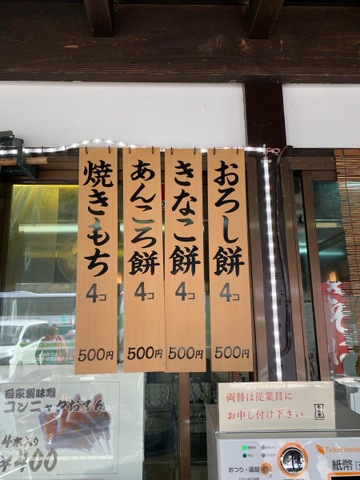 おろし餅 4コ 500円
きなこ餅 4コ 500円
あんころ餅 4コ 500円
焼きもち 4コ 500円
自家製味噌
¥400
両替は従業員に
お申し付け下さい
おつり・返却
Ticket Vendor
紙幣